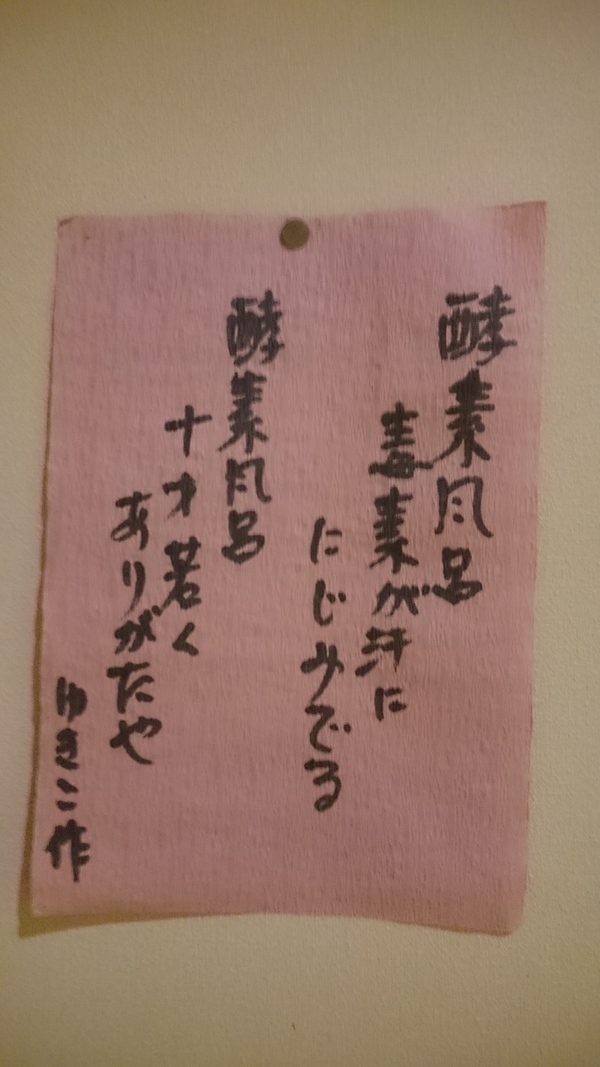 酵素風呂
毒素が汗に
にじみでる
酵素風呂
十才若く
ありがたや
ゆきこ作